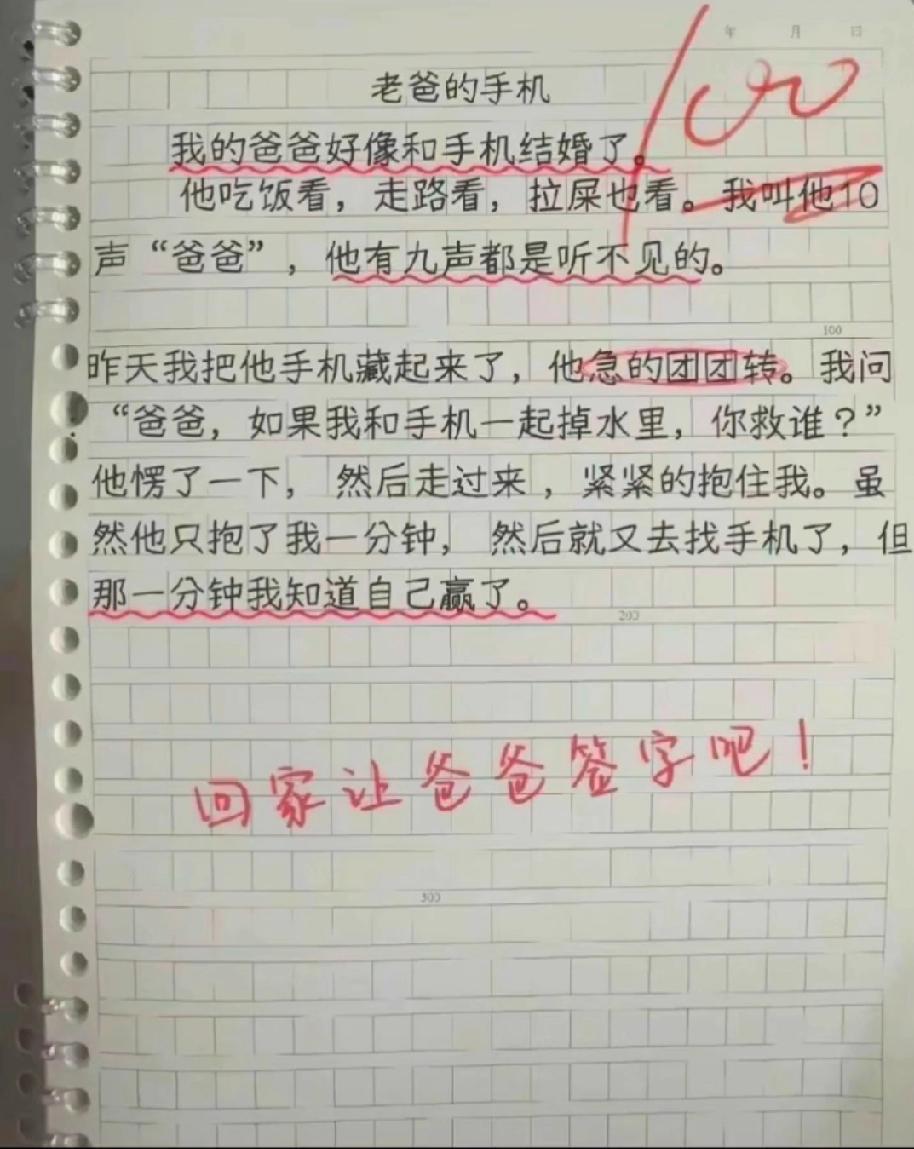 年 月 日
100
老爸的手机
我的爸爸好像和手机结婚了。
他吃饭看，走路看，拉屎也看。我叫他10
声“爸爸”，他有九声都是听不见的。
100
昨天我把他手机藏起来了，他急的团团转。我问
“爸爸，如果我和手机一起掉水里，你救谁？”
他愣了一下， 然后走过来，紧紧的抱住我。虽
然他只抱了我一分钟， 然后就又去找手机了，但
那一分钟我知道自己赢了。
200
回家让爸爸签字吧！
300